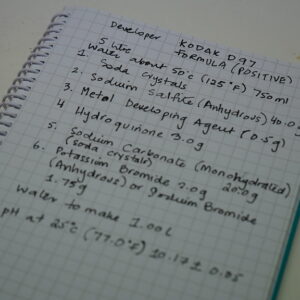 Developer KODAK D97
5 litre FORMULA (POSITIVE)
Water about 50°C (125°F) 750ml
1. Soda Crystals
2. Sodium Sulfite (Anhydrous) 40.0g
3. Metal Developing Agent (0.5g)
4 Hydroquinone 3.0g
5. Sodium Carbonate (Monohydrated)
(soda crystals) 20.0g
6. Potassium Bromide 2.0g
(Anhydrous) or Sodium Bromide
1.75g
Water to make 1.00L
pH at 25°C (77.0°F) 10.17 ± 0.05